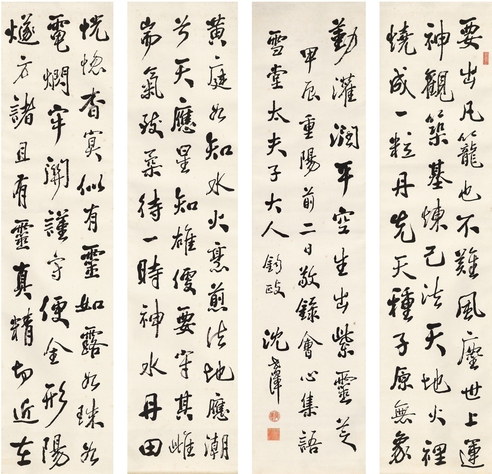 要出凡籠也不難風塵世上運
神觀築基煉己法天地火裡
燒成一粒丹先天種子原無象
恍惚杳冥似有靈如露如珠如
電燗牢關謹守便全形陽
燧方諸且有靈真精切近在
黃庭如知水火烹煎法地應潮
兮天應星知雄便要守其雌
耑氣致柔待一時神水丹田
勤灌潤平空生出紫靈芝
甲辰重陽前二日敬錄會心集語
雪堂太夫子大人 鈞政 沈澤